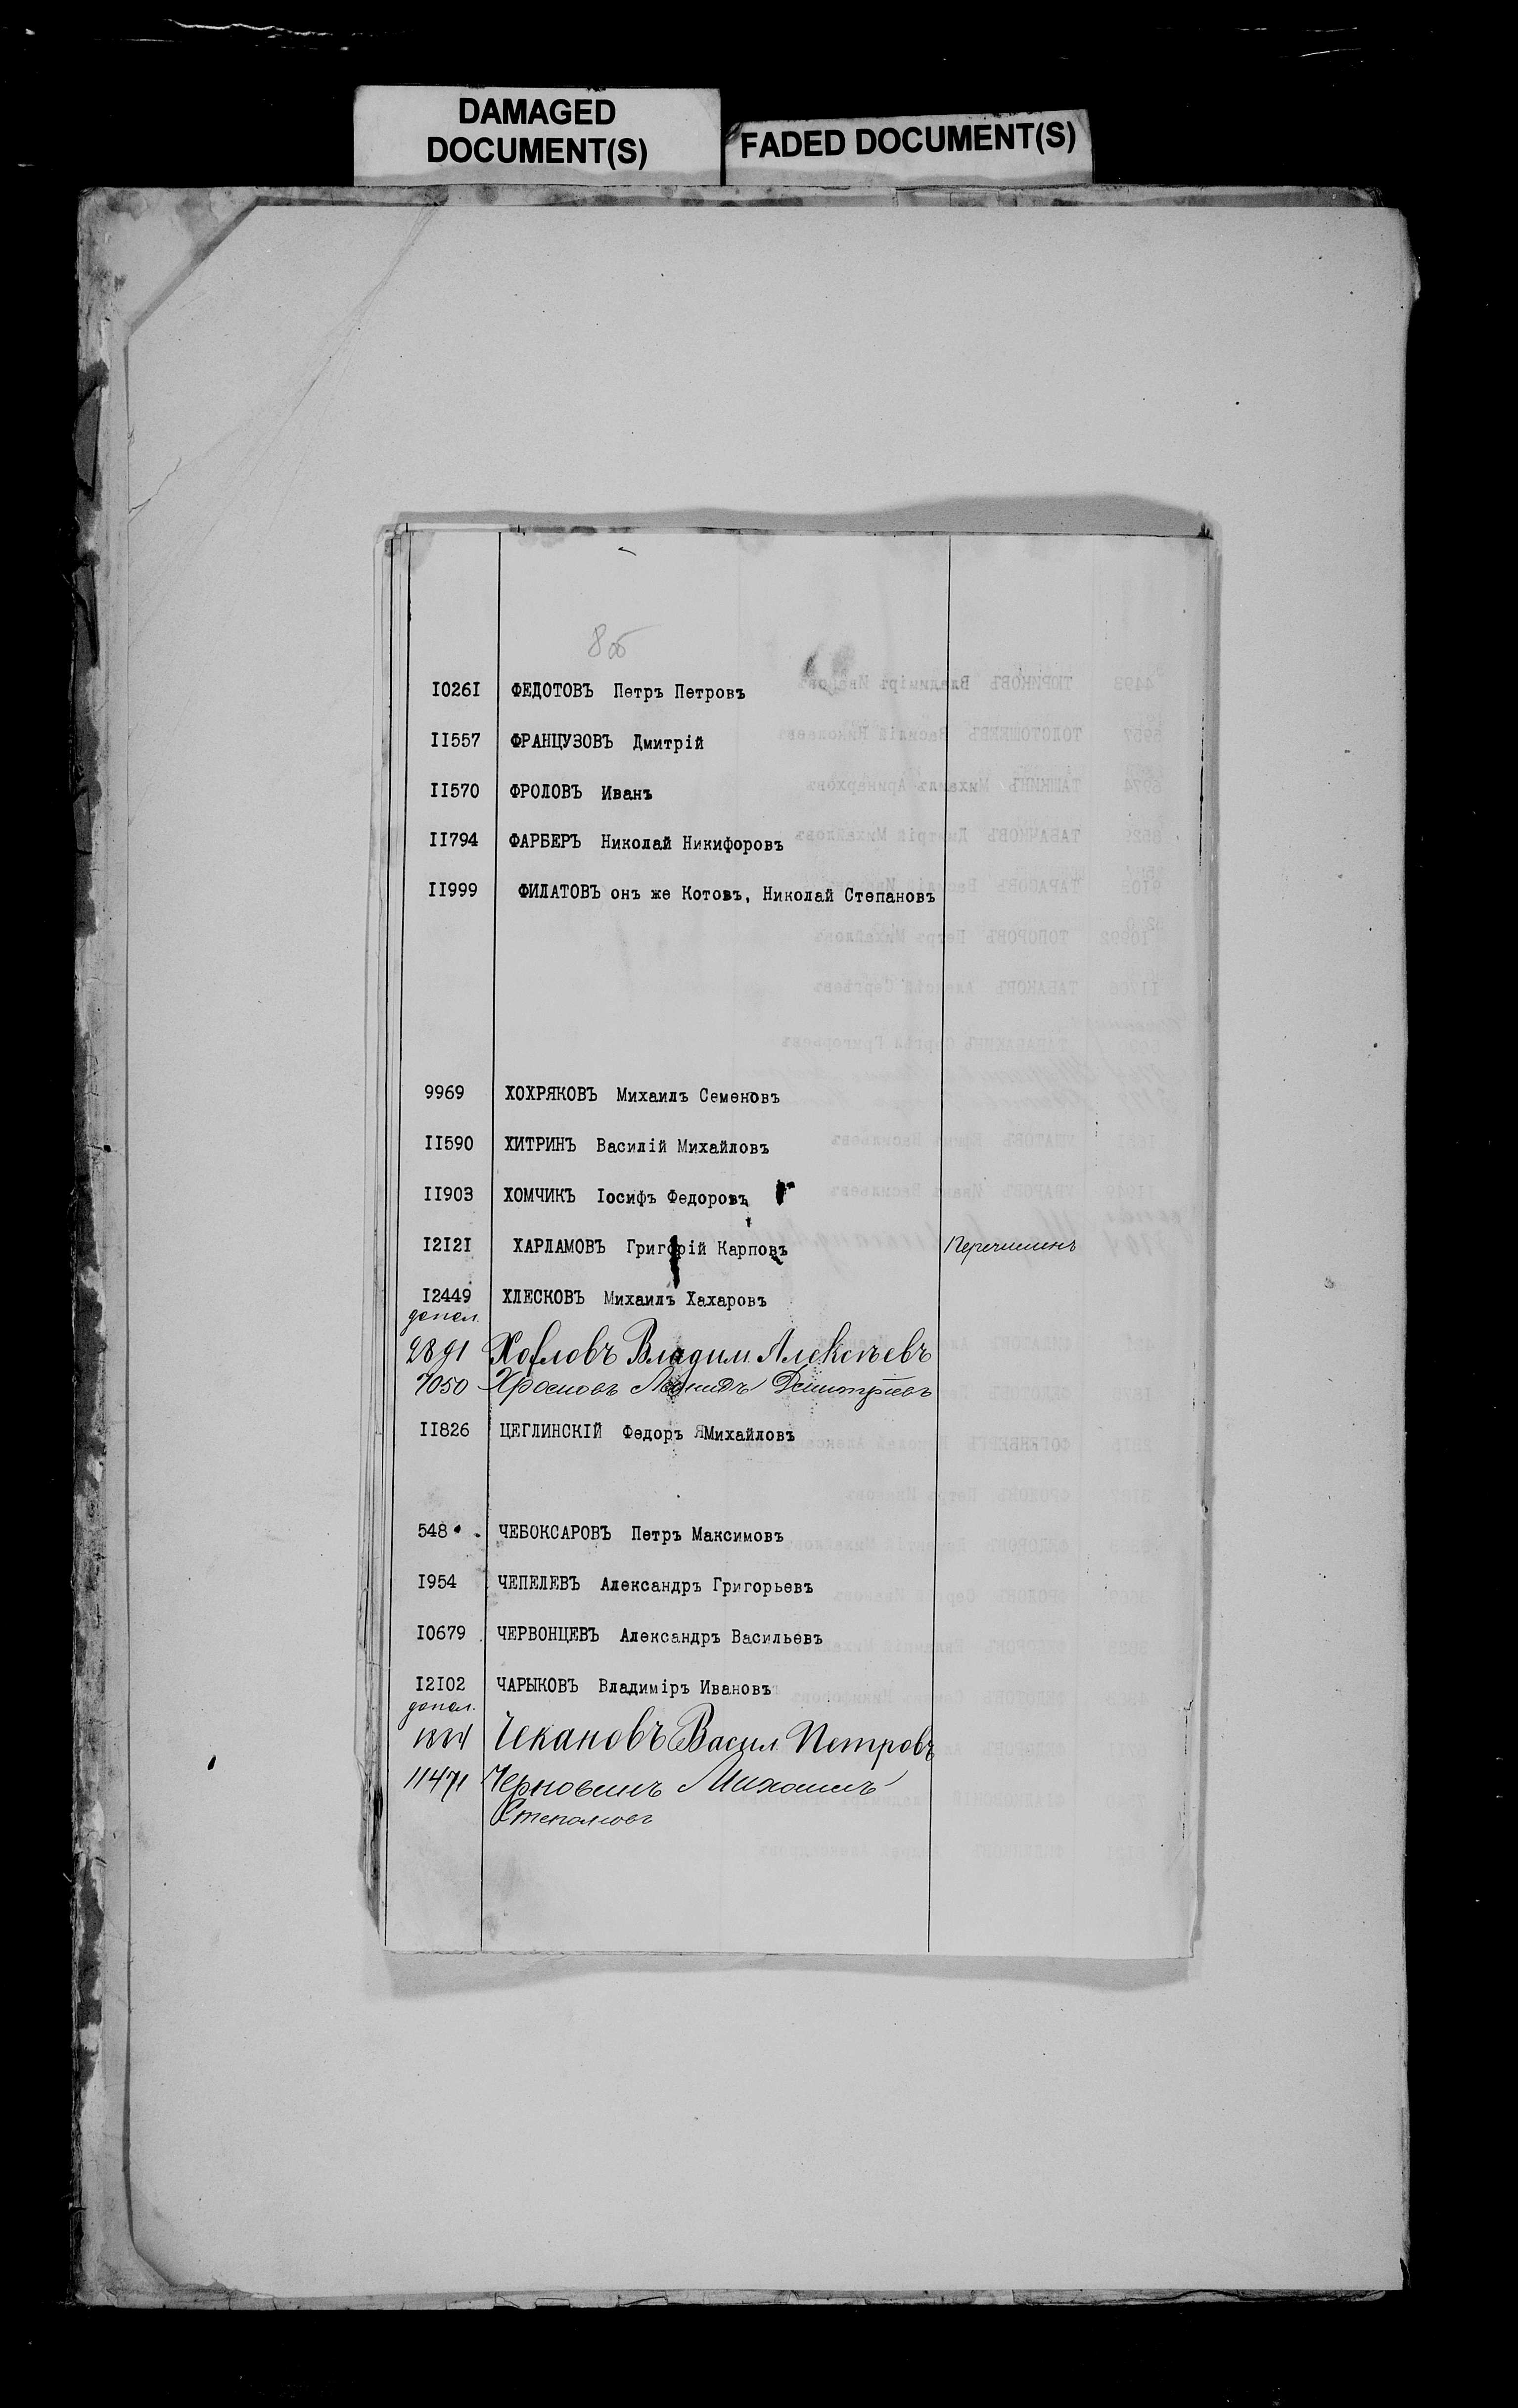 DAMAGED
DOCUMENT(S)
FADED DOCUMENT(S)
8об
I026I ФЕДОТОВЪ Петръ Петровъ
II557 ФРАНЦУЗОВЪ Дмитрій
II570 ФРОЛОВЪ Иванъ
II794 ФАРБЕРЪ Николай Никифоровъ
II999 ФИЛАТОВЪ онъ же Котовъ, Николай Степановъ
9969 ХОХРЯКОВЪ Михаилъ Семеновъ
II590 ХИТРИНЪ Василій Михайловъ
II903 ХОМЧИКЪ Іосифъ Федоровъ
I2I2I ХАРЛАМОВЪ Григорій Карповъ Перечисленъ
I2449 ХЛЕСКОВЪ Михаилъ Хахаровъ
допол.
2891 Владим. Алексѣевъ
7050 Леонидъ Дмитріевъ
II826 ЦЕГЛИНСКІЙ Федоръ ЯМихайловъ
548 ЧЕБОКСАРОВЪ Петръ Максимовъ
I954 ЧЕПЕЛЕВЪ Александръ Григорьевъ
I0679 ЧЕРВОНЦЕВЪ Александръ Васильевъ
I2I02 ЧАРЫКОВЪ Владиміръ Ивановъ
допол.
Чекановъ Васил. Петровъ
11471 Михаилъ
Степановъ